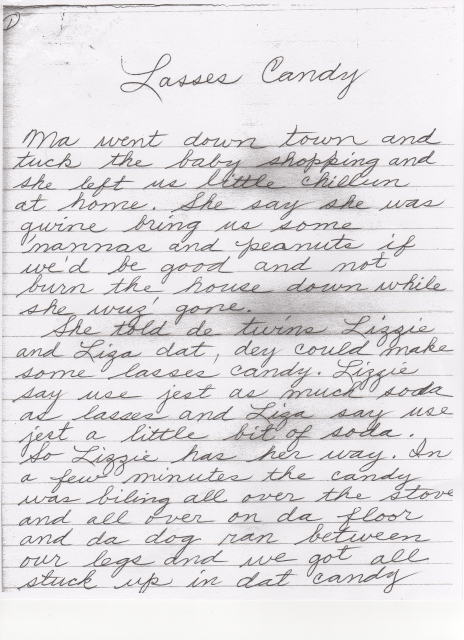 1
Lasses Candy
Ma went down town and
tuck the baby shopping and
she left us little chillun
at home. She say she was
gwine bring us some
'nannas and peanuts if
we'd be good and not
burn the house down while
she wuz' gone.
She told de twins Lizzie
and Liza dat, dey could make
some lasses candy. Lizzie
say use jest as much soda
as lasses and Liza say use
jest a little bit of soda.
So Lizzie has her way. In
a few minutes the candy
was biling all over the stove
and all over on da floor
and da dog ran between
our legs and we got all
stuck up in dat candy